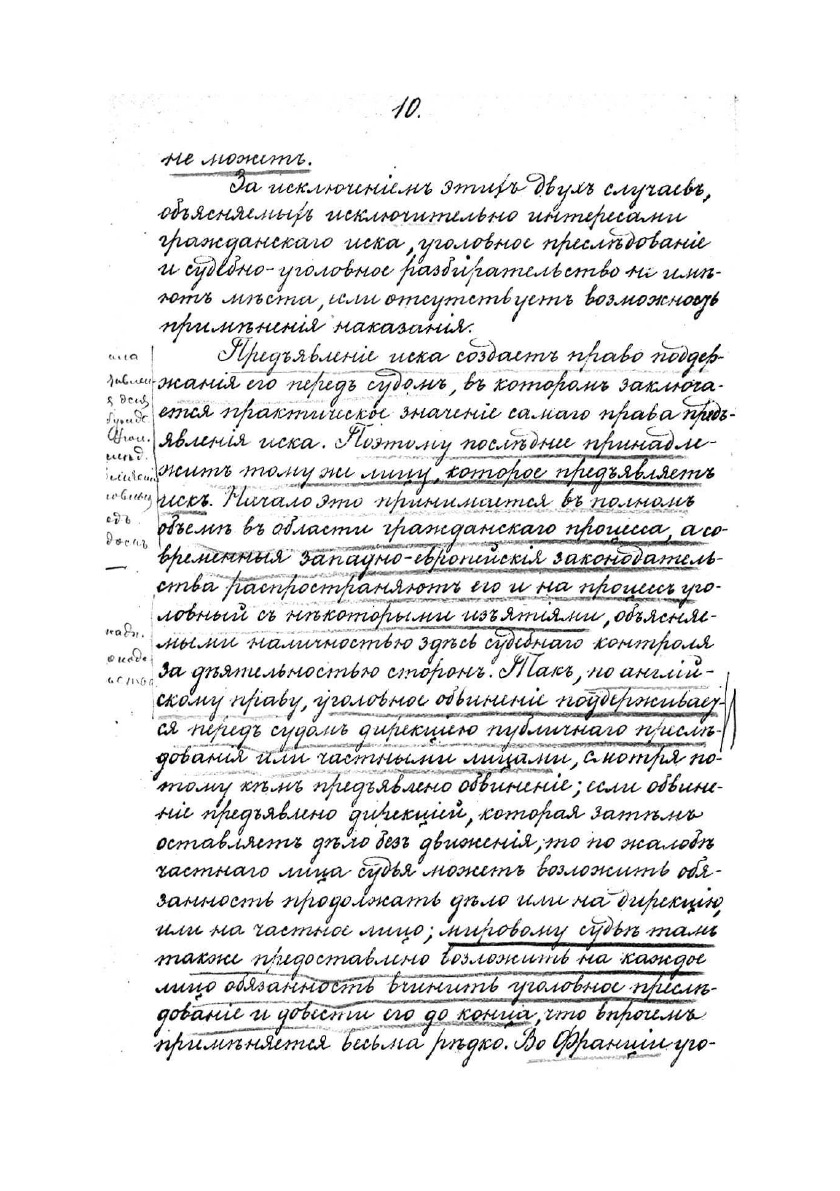 10.
не можетъ.
За исключеніемъ этихъ двухъ случаевъ,
объясняемыхъ исключительно интересами
гражданскаго иска, уголовное преслѣдованіе
и судебно-уголовное разбирательство не имѣ-
ютъ мѣста, если отсутствуетъ возможность
примѣненія наказанія.
Предъявленіе иска создаетъ право поддер-
жанія его передъ судомъ, въ которомъ заключа-
ется практическое значеніе самаго права предъ-
явленія иска. Поэтому послѣднее принадле-
житъ тому же лицу, которое предъявляетъ
искъ. Начало это принимается въ полномъ
объемѣ въ области гражданскаго процесса, а со-
временныя западно-европейскія законодатель-
ства распространяютъ его и на процессъ уго-
ловный съ нѣкоторыми изъятіями, объясняе-
мыми наличностью здѣсь судебнаго контроля
за дѣятельностью сторонъ. Такъ, по англій-
скому праву, уголовное обвиненіе поддерживает-
ся передъ судомъ дирекціею публичнаго преслѣ-
дованія или частными лицами, смотря по-
тому кѣмъ предъявлено обвиненіе; если обвине-
ніе предъявлено дирекціей, которая затѣмъ
оставляетъ дѣло безъ движенія, то по жалобѣ
частнаго лица судья можетъ возложить обя-
занность продолжать дѣло или на дирекцію,
или на частное лицо; мировому судьѣ тамъ
также предоставлено возложить на каждое
лицо обязанность вчинить уголовное преслѣ-
дованіе и довести его до конца, что впрочемъ
примѣняется весьма рѣдко. Во Франціи уго-